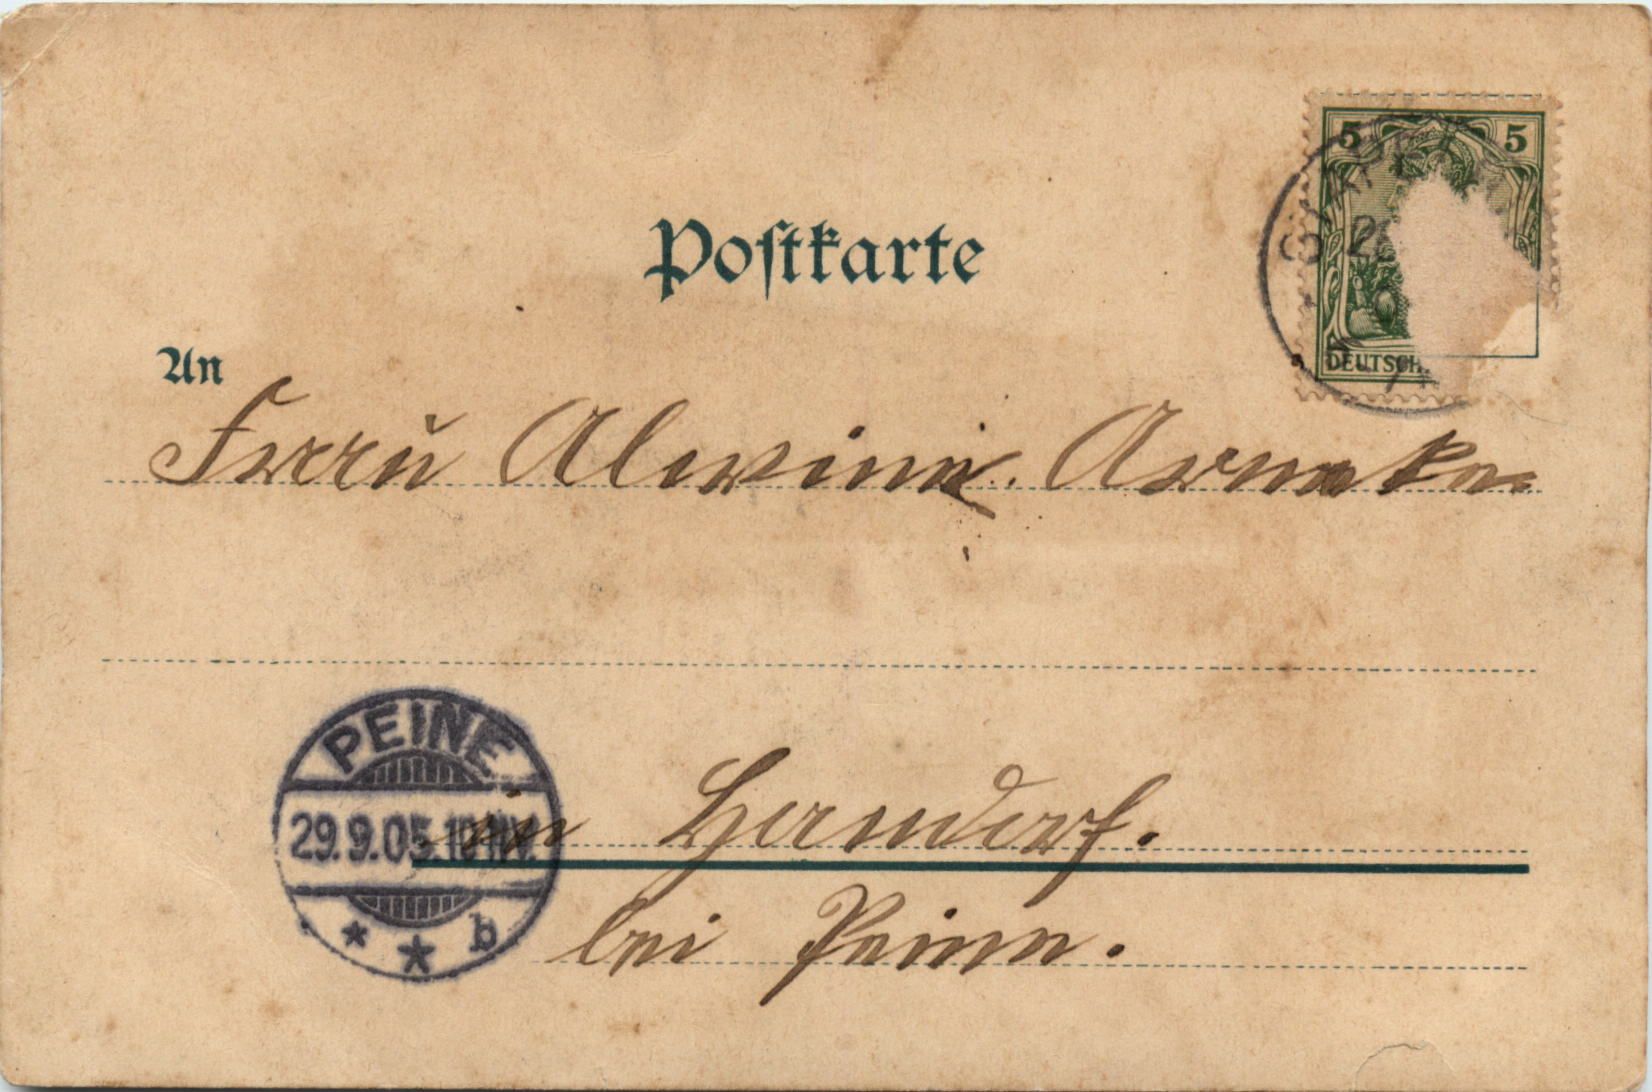 5 5
Postkarte
DEUTSCH
An
Frau Alwine Arneke
PEINE
29.9.05.10-11V.
in Handorf.
b
bei Peine.